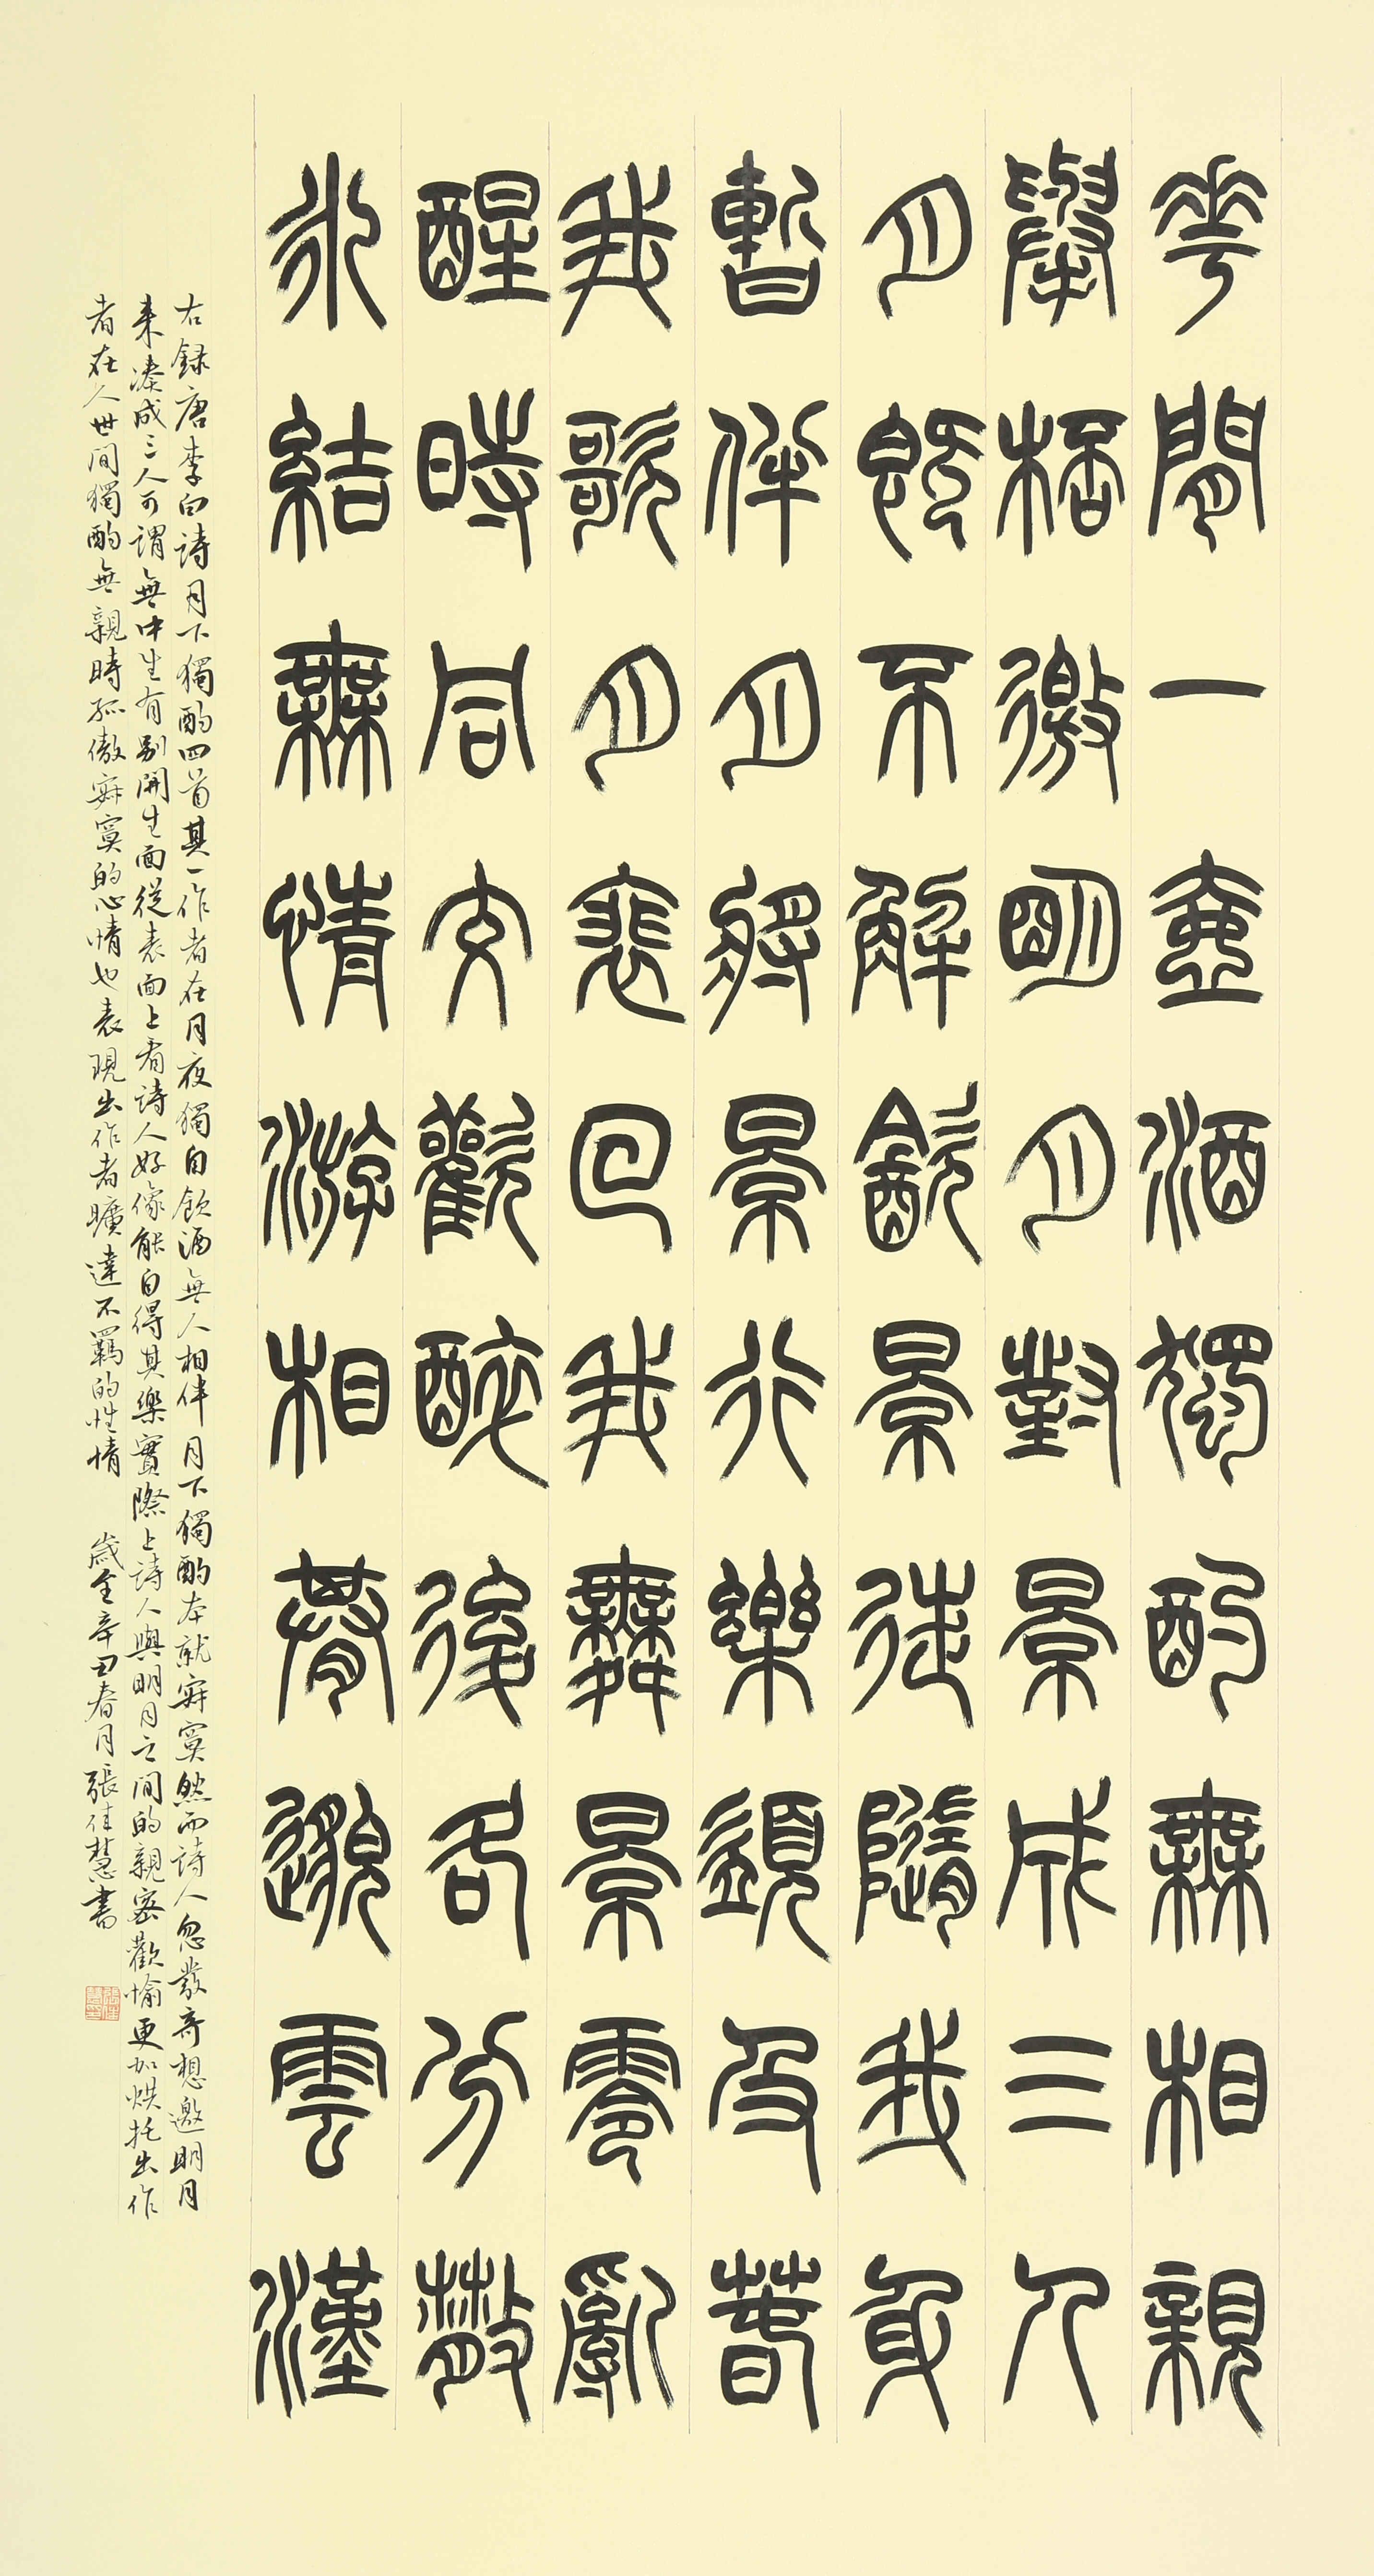 花間一壺酒獨酌無相親
舉桮邀朙月對景成三人
月既不解飲景徒隨我身
暫伴月將景行樂須及春
我歌月裴回我舞景零亂
醒時同交歡醉後各分散
永結無情游相期邈雲漢
右録唐李白詩月下獨酌四首其一作者在月夜獨自飲酒無人相伴月下獨酌本就寂寞然而詩人忽發奇想邀明月
来湊成三人可謂無中生有別開生面從表面上看詩人好像能自得其樂實際上詩人與明月之間的親密歡愉更加烘托出作
者在人世間獨酌無親時孤傲寂寞的心情也表現出作者曠達不羈的性情 歲金辛丑春月張佳慧書